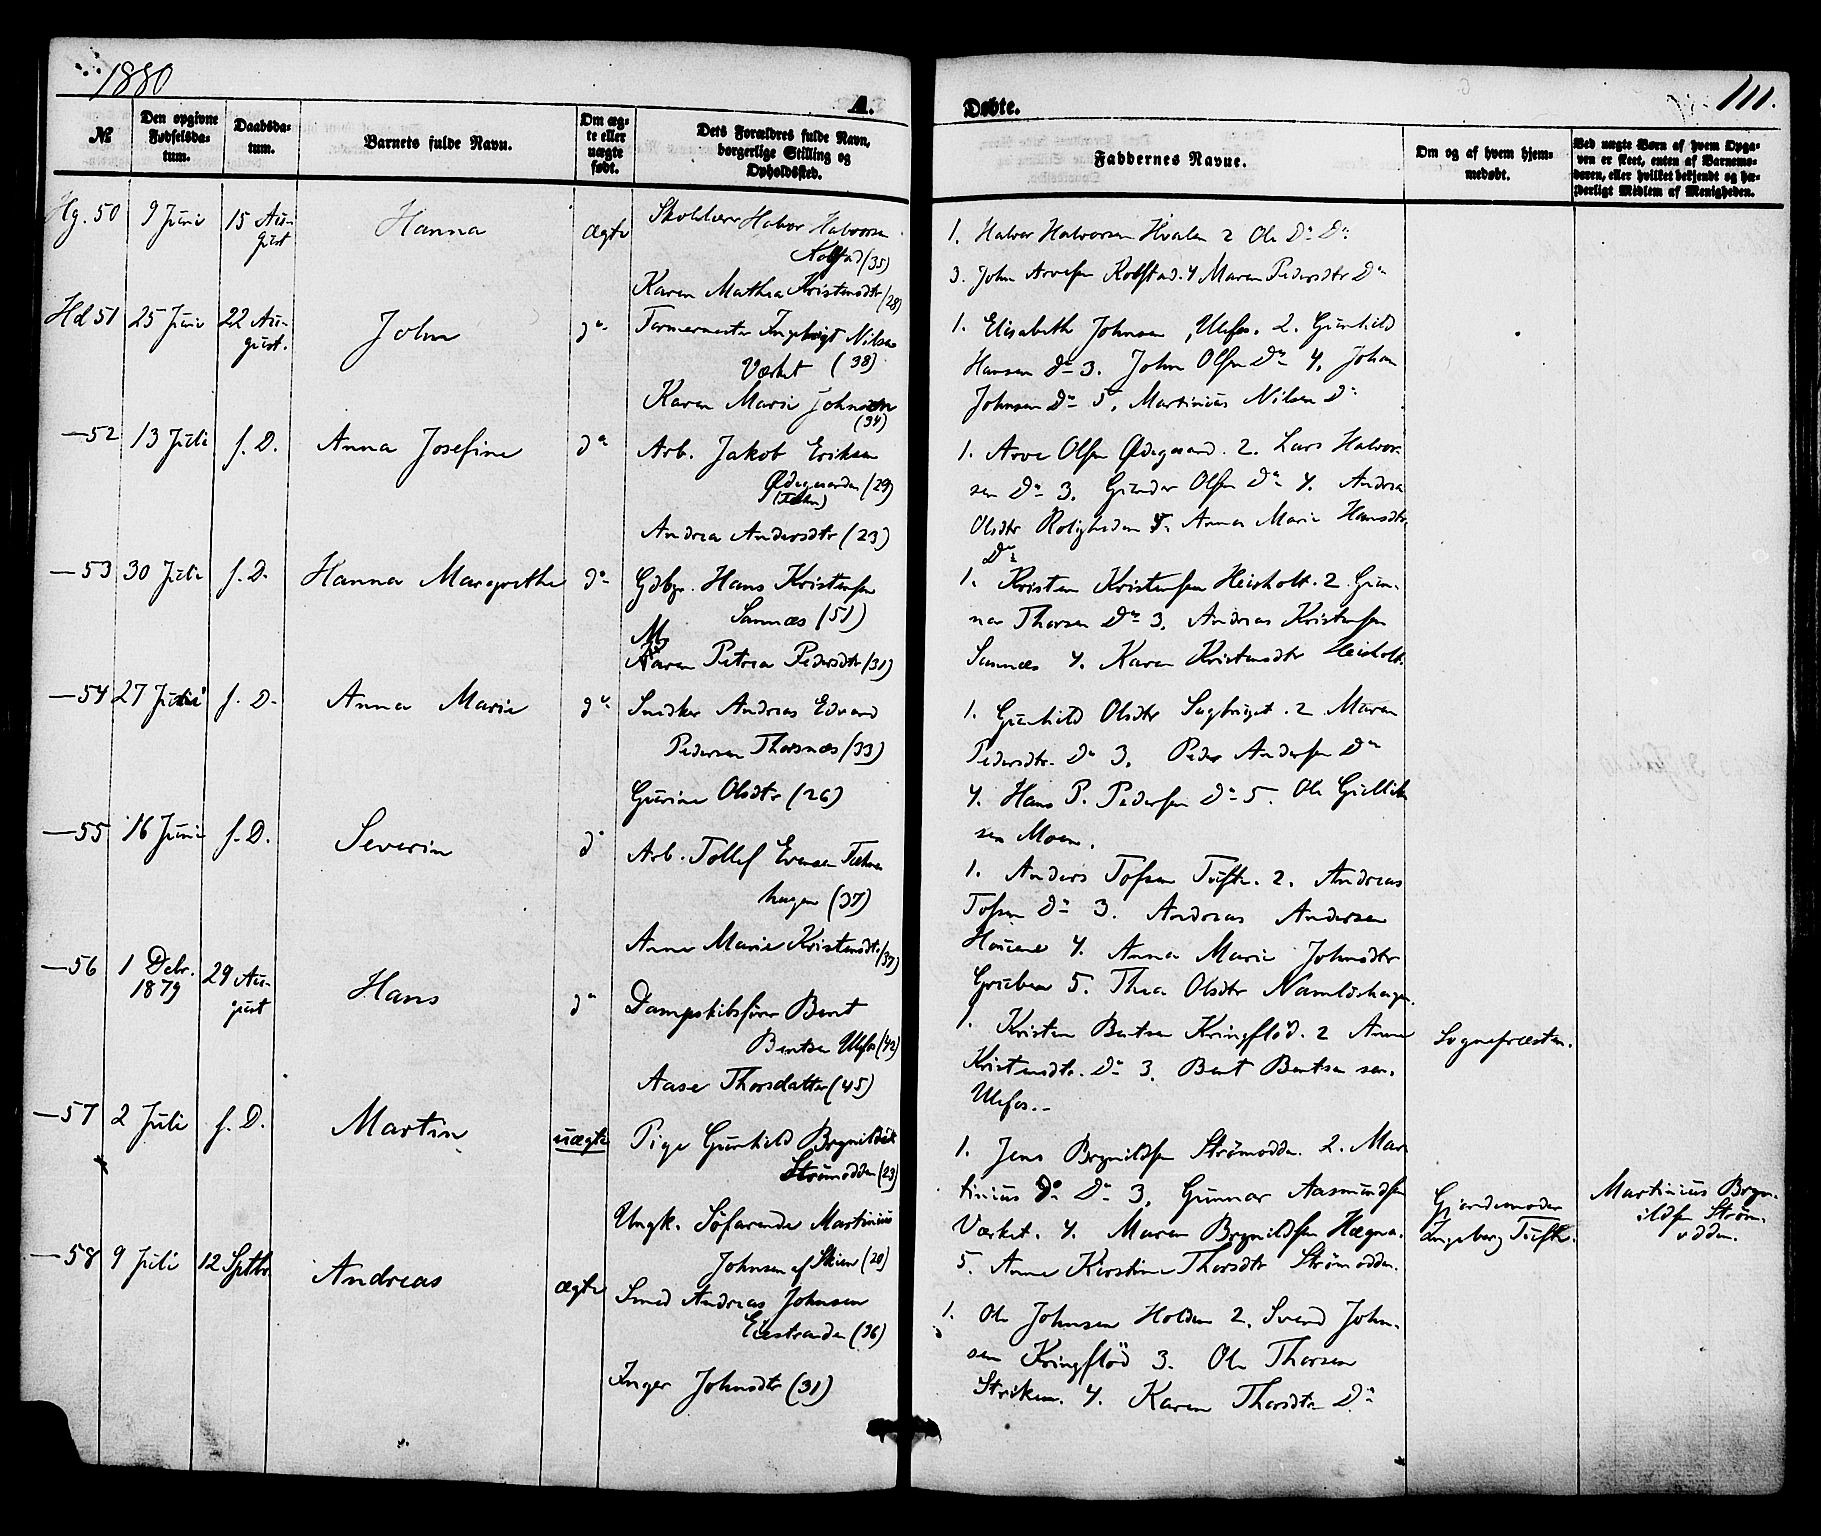 1880
A.
Døbte.
111.
№
Den opgivne Fødselsdatum.
Daabsdatum.
Barnets fulde Navn.
Om ægte eller uægte født.
Dets Forældres fulde Navn, borgerlige Stilling og Opholdssted.
Faddernes Navne.
Om og af hvem hjemmedøbt.
Ved uægte Børn af hvem Opgaven er skeet, enten af Barnemoderen, eller hvilket bekjendt og hæderligt Midlem af Menigheden.
Hg. 50
9 Juni
15 August
Hanna
ægte
Halvor Halvorsen
Kolstad (35)
Karen Mathea Kristensdtr (28)
1. Halvor Halvorsen Hvalen 2 Ole Do Do
3. John Arvesen Kolstad. 4 Maren Pedersdtr Do
Hd 51
25 Juni
22 August.
John
do
Formermester Ingebrigt Nilsen
Værket (38)
Karen Marie Johnsen
(34)
1. Elisabeth Johnsen, Ulefos. 2. Gunhild
Hansen do 3. John Olsen Do 4. Johan
Johnsen Do 5. Martinius Nilsen Do
—52
13 Juli
s. D.
Anna Josefine
do
Arb. Jakob Eriksen
Ødegaarden (29)
Andrea Andersdtr (23)
1. Arve Olsen Ødegaard. 2. Lars Halvor-
sen Do 3. Gunder Olsen Do 4. Andrea
Olsdtr Roligheden 5. Anna Marie Hansdtr
Do
—53
30 Juli
s. D.
Hanna Margrethe
do
Gdbr. Hans Kristensen
Sannæs (51)
Maren Petrea Pedersdtr (31)
1. Kristen Kristensen Heisholt. 2 Gun-
nar Thorsen Do 3. Andreas Kristensen
Sannæs 4. Karen Kristensdtr Heisholt.
—54
27 Juni
s. D.
Anna Marie
do
Snedker Andreas Edvard
Pedersen Thorsnæs (33)
Gurine Olsdtr (26)
1. Gunhild Olsdtr 2 Maren
Pedersdtr. Do 3. Peder Andersen Do
4. Hans P. Pedersen Do 5. Ole Gullik
sen Moen.
—55
16 Juni
s. D.
Severin
do
Arb. Tollef Evensen
hagen (37)
Anne Marie Kristensdtr (37)
1. Anders Tofsen Tufte. 2. Andreas
Tofsen Do 3. Andreas Andersen
4. Anna Marie Johnsdtr
Gruben 5. Thea Olsdtr
—56
1 Debr. 1879
29 August
Hans
do
Dampskibsfører Bent
Bentsen Ulefos (42)
Aase Thorsdatter (45)
1. Kristen Bentsen Kringflöd. 2 Anne
Kristensdtr. Do 3. Bent Bentsen sen.
Ulefos.
Sognepræsten.
—57
2 Juli
s. D.
Martin
uægte
Pige Gunhild Brynildsdtr
Strømodden (23)
Ungk. Søfarende Martinius
Johnsen af Skien (20)
1. Jens Brynildsen Strømodden. 2. Mar
tinius Do Do 3. Gunnar Aasmundsen
Værket. 4. Maren Brynildsen Hægna.
5. Anne Kirstine Thorsdtr Strømodden.
Gjordemoder
Ingeborg Tufte.
Martinius Bryn-
ildsen Strøm-
odden.
—58
9 Juli
12 Septbr.
Andreas
ægte
Smed Andreas Johnsen
Eiestranden (36)
Inger Johnsdtr (31)
1. Ole Johnsen Holden 2. Svend John-
sen Kringflöd 3. Ole Thorsen
Striken. 4. Karen Thorsdtr Do